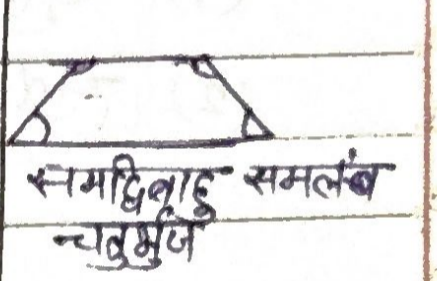 समद्विबाहु समलंब
चतुर्भुज